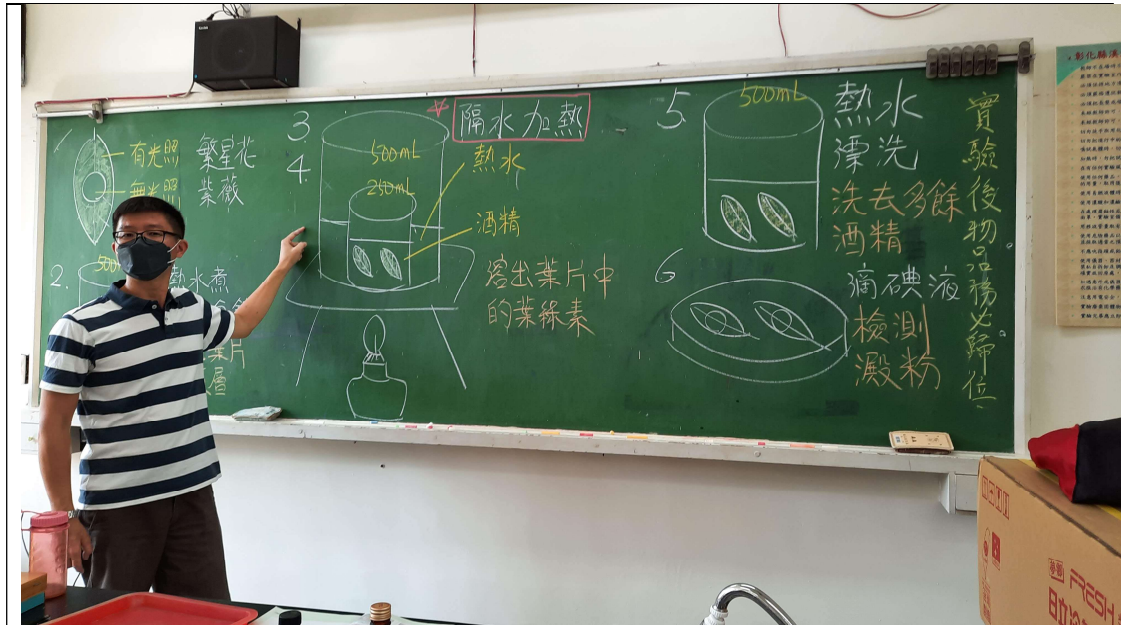 1
有光照
無光照
繁星花
紫薇
2.
500
熱水煮
葉片
層
3.
4.
隔水加熱
500mL
250mL
熱水
酒精
溶出葉片中
的葉綠素
5.
500mL
熱水
漂洗
洗去多餘
酒精
6
滴碘液
檢測
澱粉
實驗後物品務必歸位
彰化縣溪
FRESH
日立冷